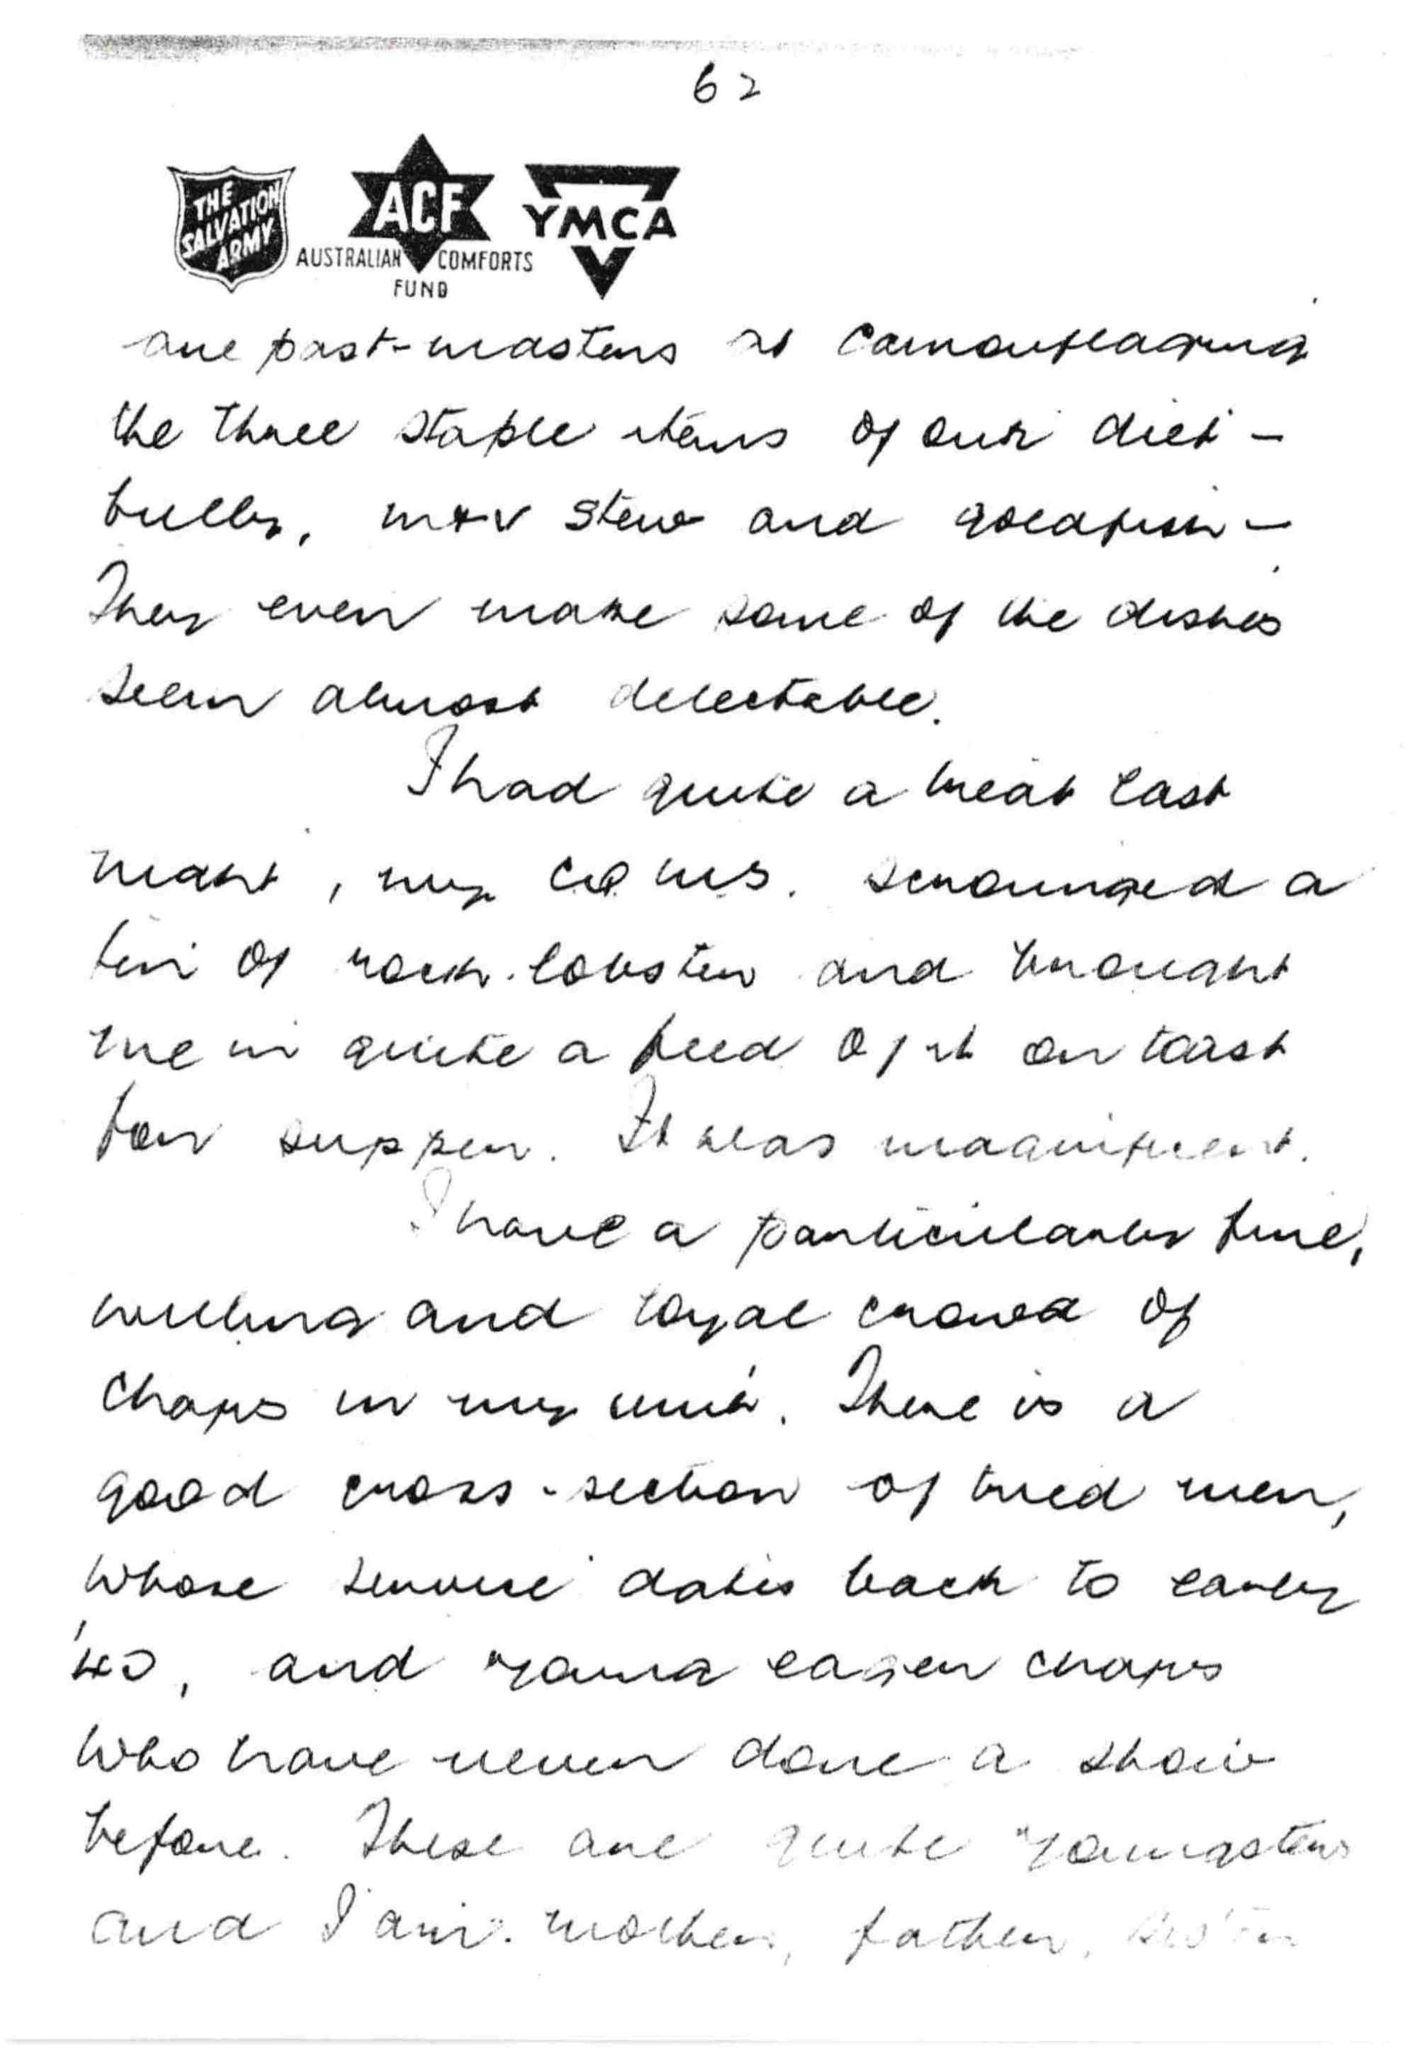 62
THE SALVATION ARMY
ACF
AUSTRALIAN COMFORTS FUND
YMCA
are past-masters at camouflaging
the three staple items of our diet -
bully, m & v stew and goldfish -
They even make some of the dishes
seem almost delectable.
I had quite a treat last
night, my CQMS. scrounged a
tin of rock-lobster and brought
me in quite a feed of it on toast
for supper. It was magnificent.
I have a particularly fine,
willing and loyal crowd of
chaps in my unit. There is a
good cross-section of tried men,
whose service dates back to early
'40, and young eager chaps
who have never done a show
before. These are quite youngsters
and I am mother, father, sister